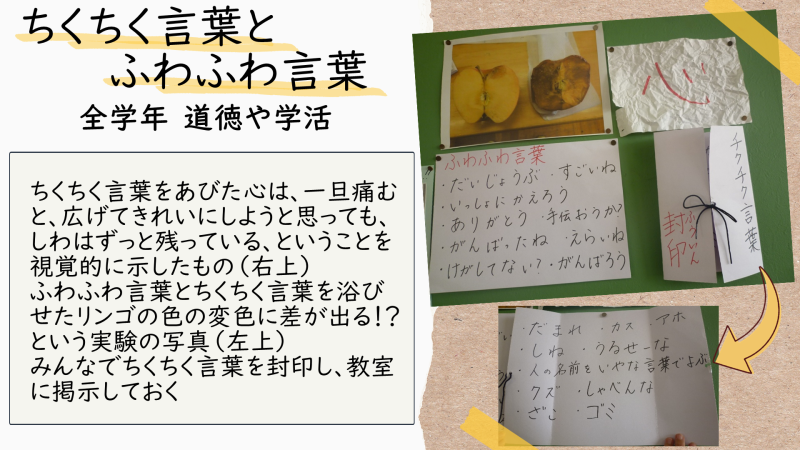 ちくちく言葉と
ふわふわ言葉
全学年 道徳や学活
ちくちく言葉をあびた心は、一旦痛む
と、広げてきれいにしようと思っても、
しわはずっと残っている、ということを
視覚的に示したもの（右上）
ふわふわ言葉とちくちく言葉を浴び
せたリンゴの色の変色に差が出る！？
という実験の写真（左上）
みんなでちくちく言葉を封印し、教室
に掲示しておく
心
ふわふわ言葉
・だいじょうぶ ・すごいね
・いっしょにかえろう
・ありがとう ・手伝おうか?
・がんばったね ・えらいね
・けがしてない? ・がんばろう
チクチク言葉
ふういん
封印
・だまれ ・カス アホ
・しね ・うるせーな
・人の名前をいやな言葉でよぶ
・クズ ・しゃべんな
・ざこ ・ゴミ